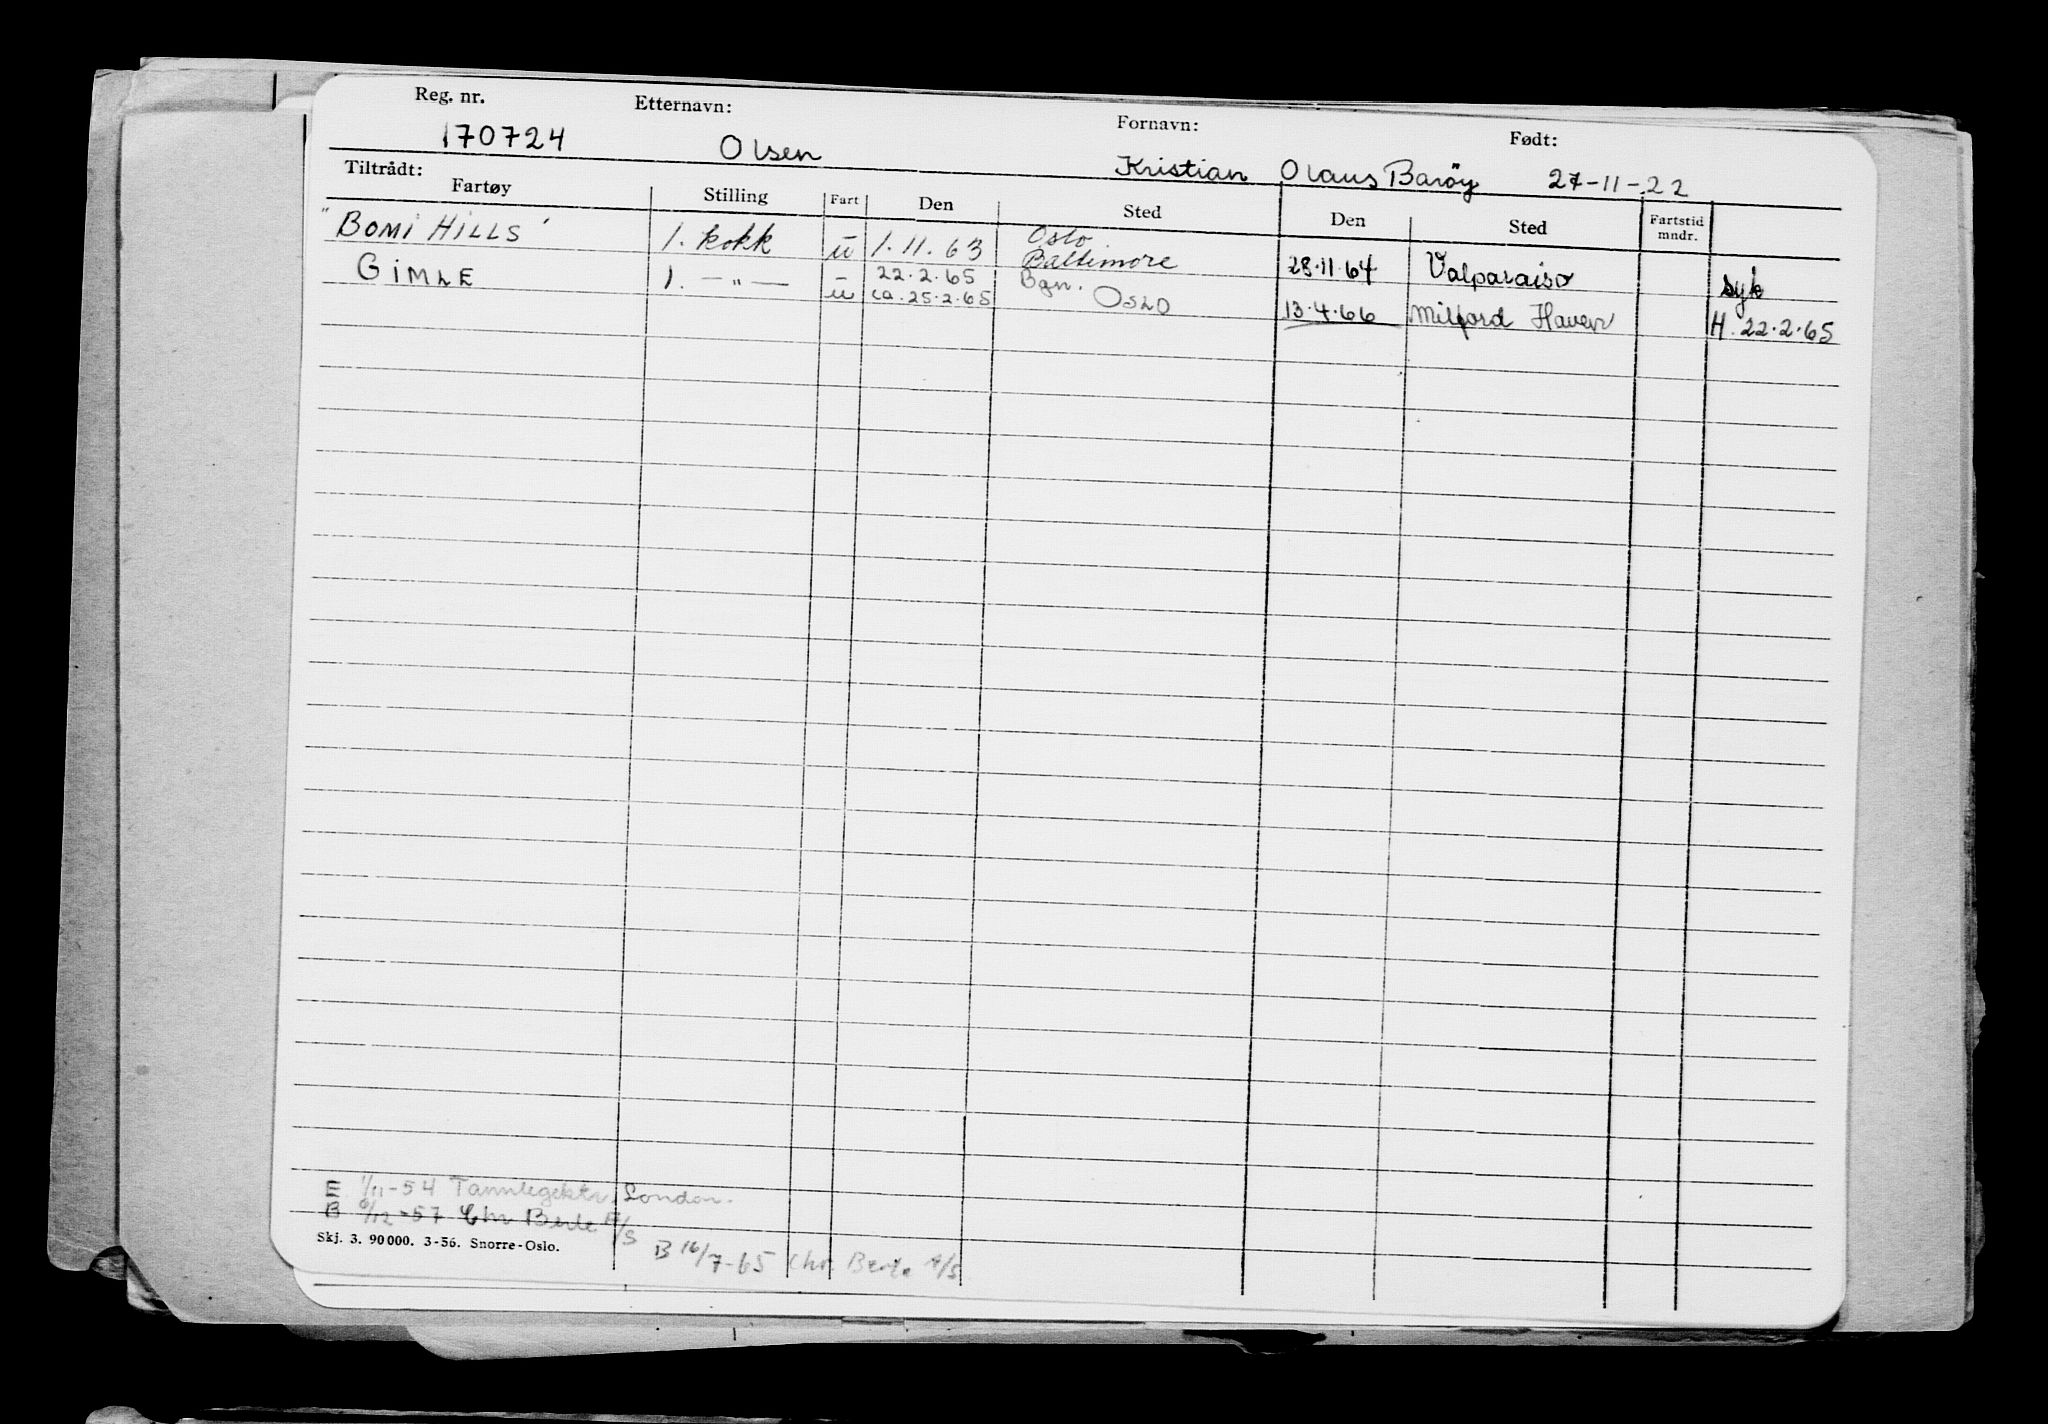 Reg. nr. Etternavn: Fornavn: Født:
170724 Olsen Kristian Olaus Barøy 27-11-22
Tiltrådt:
Fartøy Stilling Fart Den Sted Den Sted Fartstid mndr.
"BOMI HILLS" 1. kokk u 1.11.63 Oslo Baltimore 28.11.64 Valparaiso syk
GIMLE 1. —"— - 22.2.65 Bgn. 13.4.66 Milford Haven H. 22.2.65
u ca. 25.2.65 Oslo
E 1/11-54 Tannlegektr. London.
B 6/12-57 Chr Berle A/S
Skj. 3. 90 000. 3-56. Snorre-Oslo.
B 16/7-65 Chr. Berle A/S